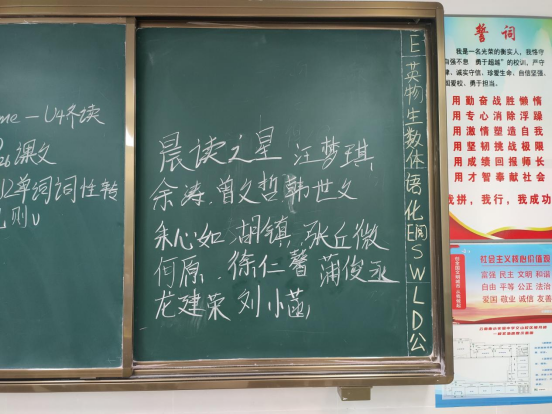 me－U4齐读
课文
单词词性转
则
晨读之星 汪梦琪
余涛.曾文哲韩世文
朱心如.胡镇.张丘微
何原.徐仁馨 蒲俊丞
龙建荣 刘小菡
E英物生数体语化E阅SWLD公
誓词
我是一名光荣的衡实人，我恪守
自强不息 勇于超越"的校训，严守
律，诚实守信，珍爱生命，自信坚强，
爱校，勇于担当。
用勤奋战胜懒惰
用专心消除浮躁
用激情塑造自我
用坚韧挑战极限
用成绩回报师长
用才智奉献社会
我拼，我行，我成功
社会主义核心价值观
富强 民主 文明 和谐
自由 平等 公正 法治
爱国 敬业 诚信 友善